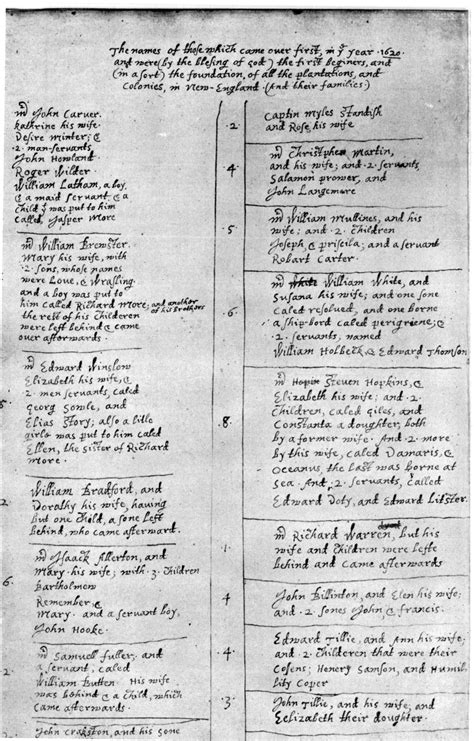 The names of those which came over first, in yᵉ year .1620.
and were (by the blesing of god) the first beginers, and
(in a sort) the foundation, of all the plantations, and
Colonies, in New-England. (And their families.)
mr John Carver.
kathrine his wife.
Desire Minter; &
.2. man-servants
John Howland
Roger Wilder.
William Latham, a boy,
& a maid servant, & a
child yt was put to him
called, Jasper More
mr William Brewster.
Mary his wife, with
.2. sons, whose names
were Love, & Wrasling.
and a boy was put to
him called Richard More; and another
of his brothers
the rest of his children
were left behind & came
over afterwards.
mr Edward Winslow
Elizabeth his wife, &
2. men servants, caled
Georg Sowle, and
Elias Story; also a litle
girle was put to him caled
Ellen, the sister of Richard
More.
William Bradford, and
Dorathy his wife, having
but one child, a sone left
behind, who came afterward.
2.
mr Isaack Allerton, and
Mary his wife; with .3. children
Bartholmew
Remember, &
Mary. and a servant boy,
John Hooke.
6.
mr Samuell fuller; and
a servant, caled
William Butten. His wife
was behind & a child, which
came afterwards.
2.
John Crakston, and his sone
.2.
Captin Myles Standish
and Rose, his wife
4.
mr Christopher Martin,
and his wife; and .2. servants,
Salamon prower, and
John Langemore
.5.
mr William Mullines, and his
wife; and .2. children
Joseph, & priscila; and a servant
Robart Carter.
.6.
mr William White, and
Susana his wife; and one sone
caled resolved, and one borne
a ship-bord caled perigriene; &
.2. servants, named
William Holbeck, & Edward Thomson
.8.
mr Steven Hopkins, &
Elizabeth his wife; and .2.
children, caled Giles, and
Constanta a doughter, both
by a former wife. And .2. more
by this wife, caled Damaris, &
Oceanus, the last was borne at
sea. And .2. servants, called
Edward Doty, and Edward Litster.
.1.
mr Richard Warren, but his
wife and children were lefte
behind and came afterwards
4
John Billinton, and Elen his wife;
and .2. sones John & francis.
.4.
Edward Tillie, and Ann his wife;
and .2. childeren that were their
cosens; Henery Samson, and Humil-
lity Coper
.3.
John Tillie, and his wife; and
Eelizabeth their doughter.